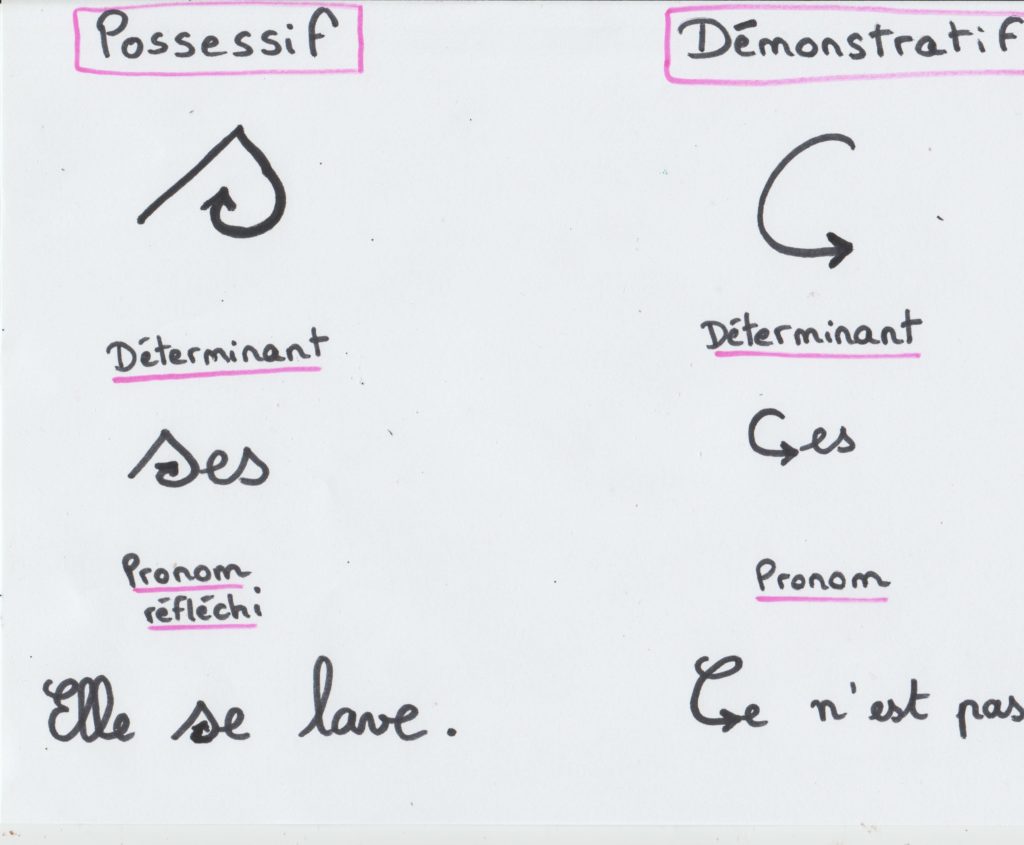 Possessif
Démonstratif
Déterminant
Déterminant
ses
ces
Pronom
réfléchi
Pronom
Elle se lave.
Ce n'est pas